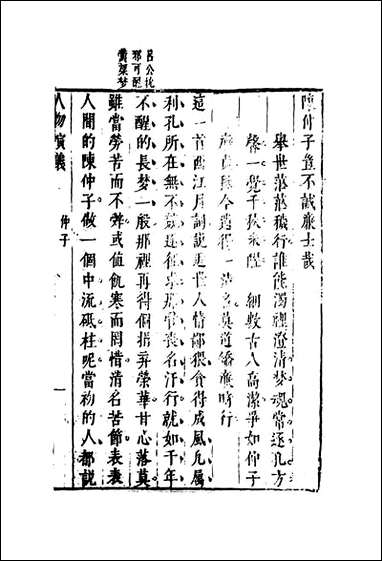 呂公枕
那可醒
黃粱夢
陳仲子豈不誠廉士哉
舉世滔滔穢行誰能濁裡澄清夢魂常逐孔方
馨一覺千秋未醒 細數古人高潔爭如仲子
廉貞至今遺得一清名莫道矯廉時行
這一首西江月詞說世人情鄙猥貪得成風凡屬
利孔所在無不逐往那管喪名汙行就如千年
不醒的長梦一般那裡再得個指弃榮華甘心落莫
雖當勞苦而不辤或值飢寒而罔惜清名苦節表表
人間的陳仲子做一個中流砥柱呢當初的人都説
人物演義 仲子 一